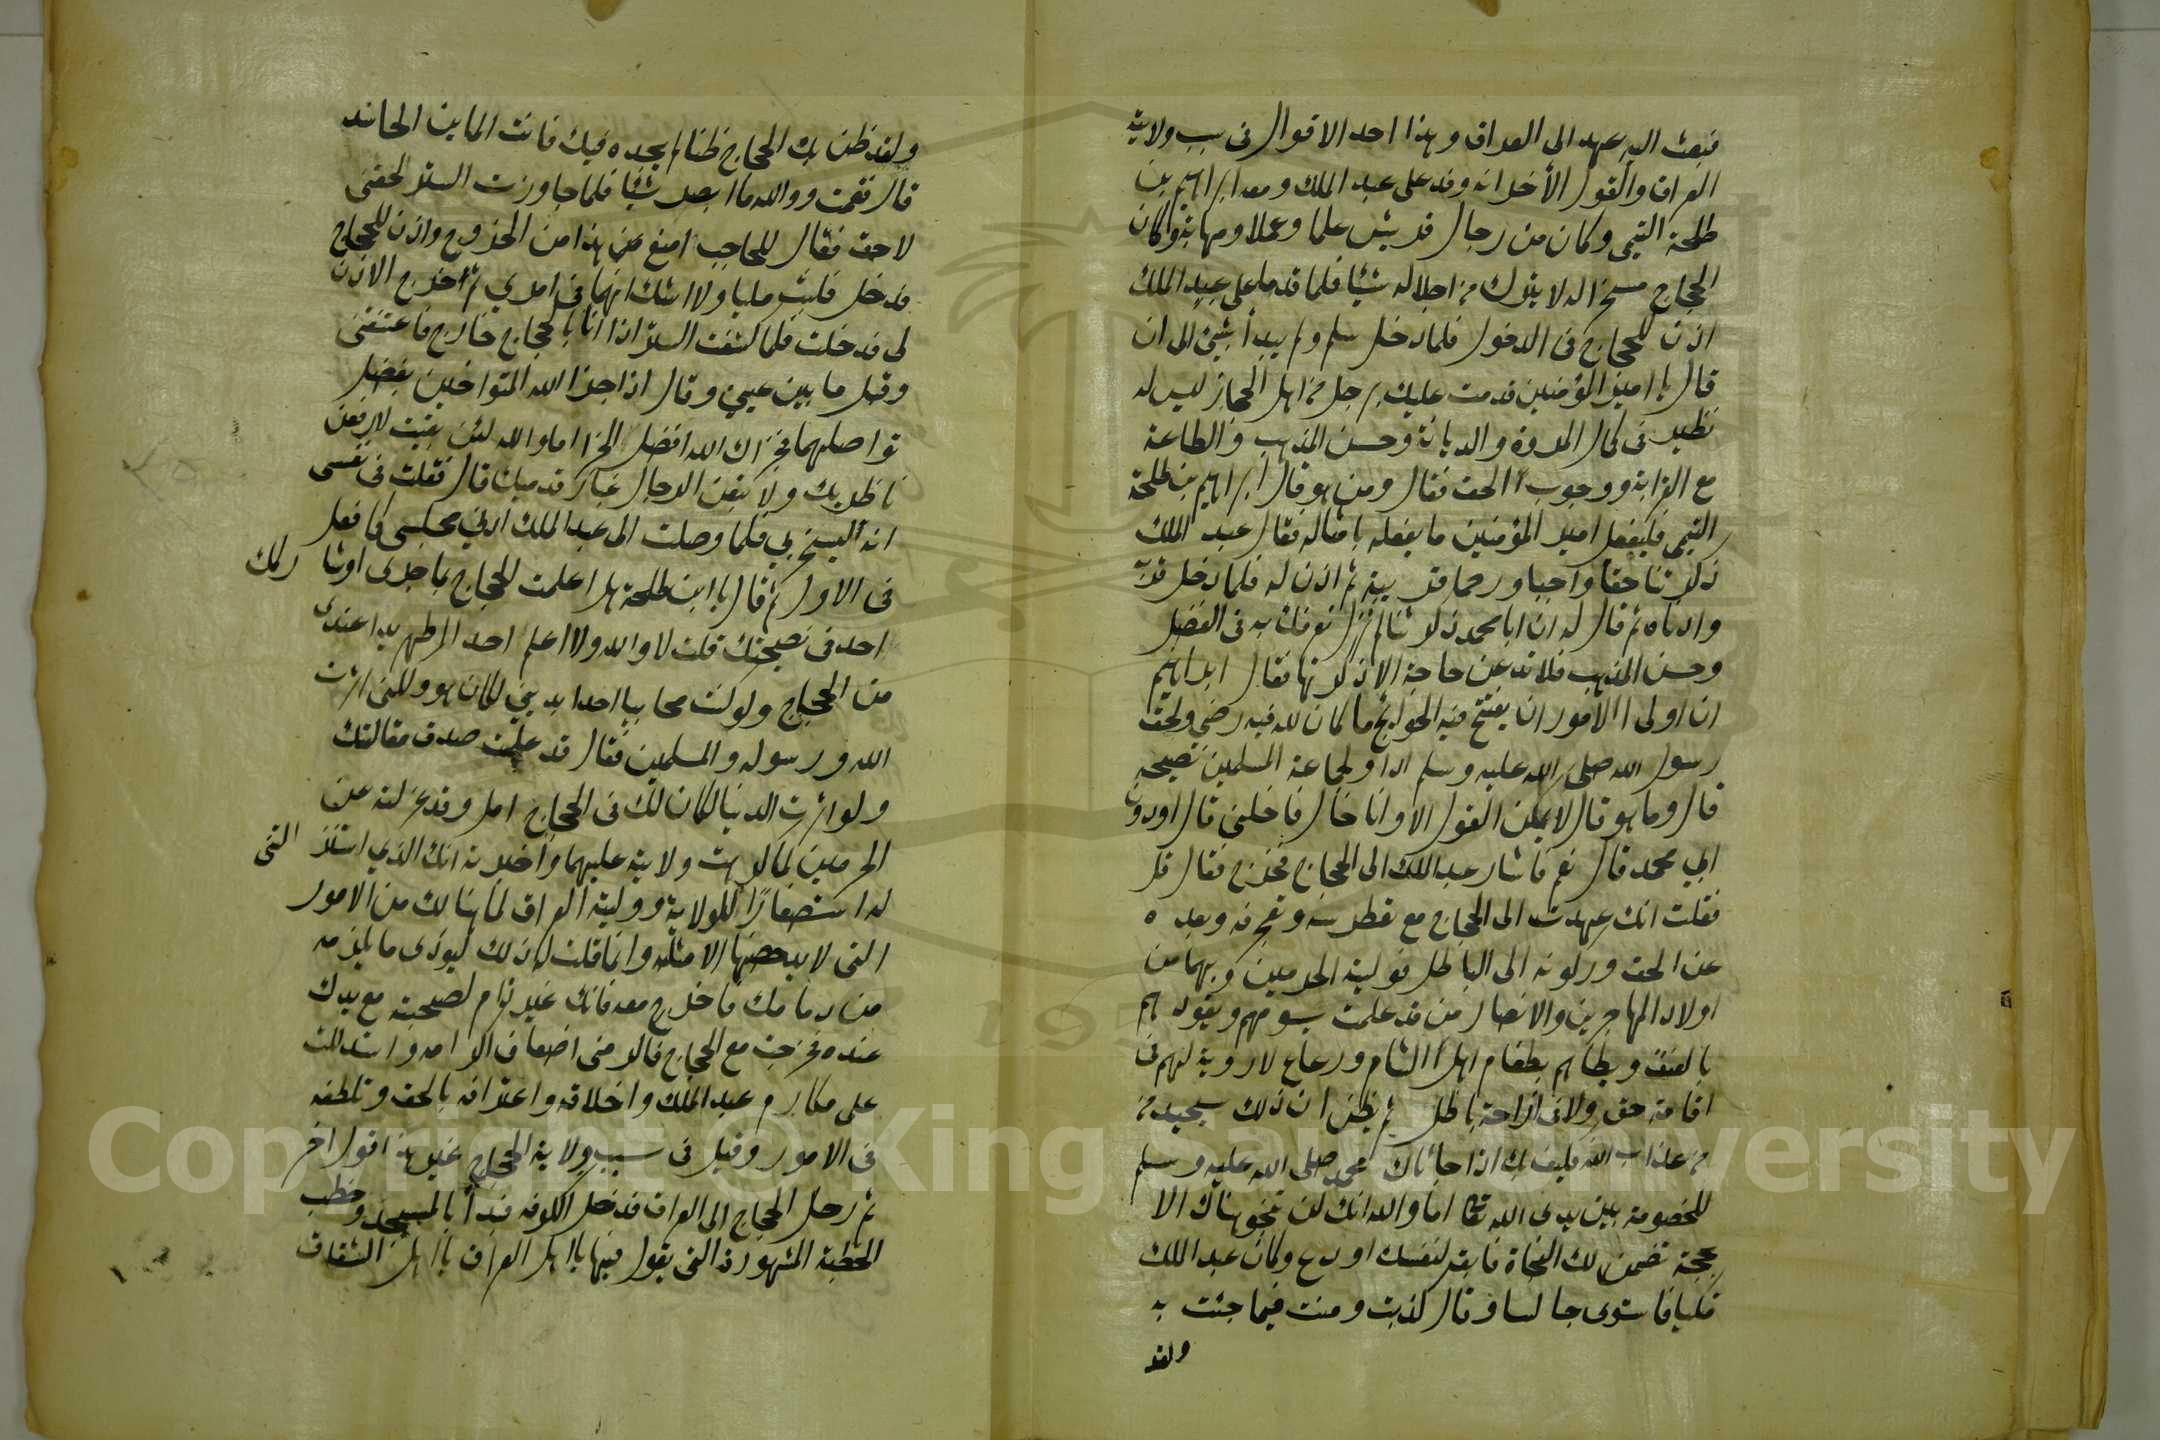 فبعث اليه عهده الى العراق وهذا احد الاقوال في سبب ولايته
العراق والقول الأخر انه وفد على عبد الملك ومعه ابراهيم بن
طلحة التيمي وكان من رجال قريش علما وعملا ومهابة وكان
الحجاج مسخرا له لا يترك من اجلاله شيئا فلما قدما على عبد الملك
اذن للحجاج في الدخول فلما دخل سلم ولم يبدأ بشئ الى ان
قال يا امير المؤمنين قدمت عليك برجل من اهل الحجاز ليس له
نظير في كمال المروة والديانة وحسن المذهب والطاعة
مع القرابة ووجوب الحق فقال ومن هو قال ابراهيم بن طلحة
التيمي فليفعل امير المؤمنين ما يفعله بامثاله فقال عبد الملك
ذكرتنا حقا واجبا ورحما قريبة ثم اذن له فلما دخل قربه
وادناه ثم قال له ان ابا محمد ذكرنا ما لم نزل نعرفك به في الفضل
وحسن المذهب فلا تدعن حاجة الا ذكرتها فقال ابراهيم
ان اولى الامور ان يفتتح فيه الحوائج ما كان لله فيه رضى ولحق
رسول الله صلى الله عليه وسلم اداء ولجماعة المسلمين نصيحة
قال وما هو قال لا يمكن القول الا وانا خال فاخلني قال او دون
ابي محمد قال نعم فاشار عبد الملك الى الحجاج فخرج فقال قل
فقلت انك عهدت الى الحجاج مع تغطرسه وتعجرفه وبعده
عن الحق وركونه الى الباطل فوليته الحرمين وبهما من
اولاد المهاجرين والانصار من قد علمت يسومهم ويقودهم
بالعنف ويطأهم بطغام اهل الشام ورعاع لا روية لهم في
اقامة حق ولا في ازاحة باطل ثم تظن ان ذلك ينجيك من
من عذاب الله فكيف بك اذا جاثاك محمد صلى الله عليه وسلم
للخصومة بين يدي الله تعالى اما والله انك لن تنجو هناك الا
بحجة تضمن لك النجاة فابقه لنفسك او دع وكان عبد الملك
متكيا فاستوى جالسا وقال كذبت ومنت فيما جئت به
ولقد
ولقد ظن بك الحجاج ظنا لم يجده فيك فانت الماين الحاسد
قال فقمت ووالله ما ابصر شيئا فلما جاوزت الستر لحقني
لاحق فقال للحاجب امنع هذا من الخروج واذن للحجاج
فدخل فلبث مليا ولا اشك انهما في امري ثم خرج الاذن
لي فدخلت فلما كشفت الستر اذا انا بالحجاج خارج فاعتنقني
وقبل ما بين عيني وقال اذا جزا الله المتواخين بفضل
تواصلهما فجزاك الله افضل الجزا اما والله لئن بقيت لارفعن
ناظريك ولا يتبعن الرجال غبار قدميك قال فقلت في نفسي
انه ليسخر بي فلما وصلت الى عبد الملك ادنى مجلسي كما فعل
في الاول ثم قال يا ابن طلحة هل اعلمت الحجاج بما جرى او شاركك
احد في نصيحتك قلت لا والله ولا اعلم احدا اظهر يدا عندي
من الحجاج ولو كنت محابيا احدا بديني لكان هو ولكني اثرت
الله ورسوله والمسلمين فقال قد علمت صدق مقالتك
ولو اثرت الدنيا لكان لك في الحجاج امل وقد عزلته عن
الحرمين لما كرهت ولايته عليهما واخبرته انك الذي استنزلتني
له استصغارا للولاية ووليته العراق لما هنالك من الامور
التي لا يدحضها الا مثله وانما قلت له ذلك ليودي ما يلزمه
من ذمامك فاخرج معه فانك غير ذام لصحبته مع يدك
عنده فخرجت مع الحجاج فاكرمني اضعاف اكرامه واستدللت
على مكارم عبد الملك واخلاقه واعترافه بالحق وتلطفه
في الامور وقيل في سبب ولاية الحجاج غير هذا قول اخر
ثم رحل الحجاج الى العراق فدخل الكوفه فبدأ بالمسجد وخطب
الخطبة المشهورة التي يقول فيها يا اهل العراق يا اهل الشقاق
Copyright © King Saud University